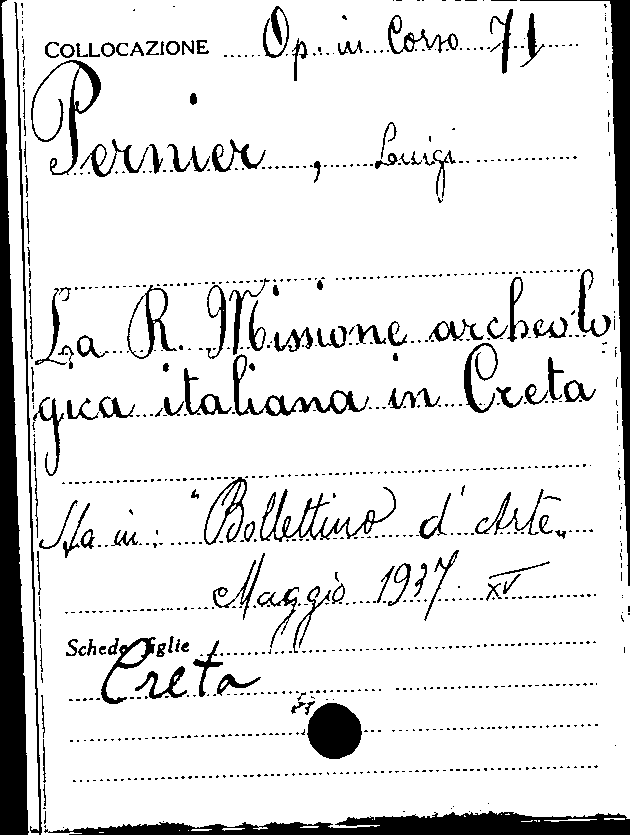 COLLOCAZIONE Op. in Corso 71
Pernier, Luigi
La R. Missione archeolo
gica italiana in Creta
Sta in: "Bollettino d'Arte„
Maggio 1937 XV
Schede figlie
Creta